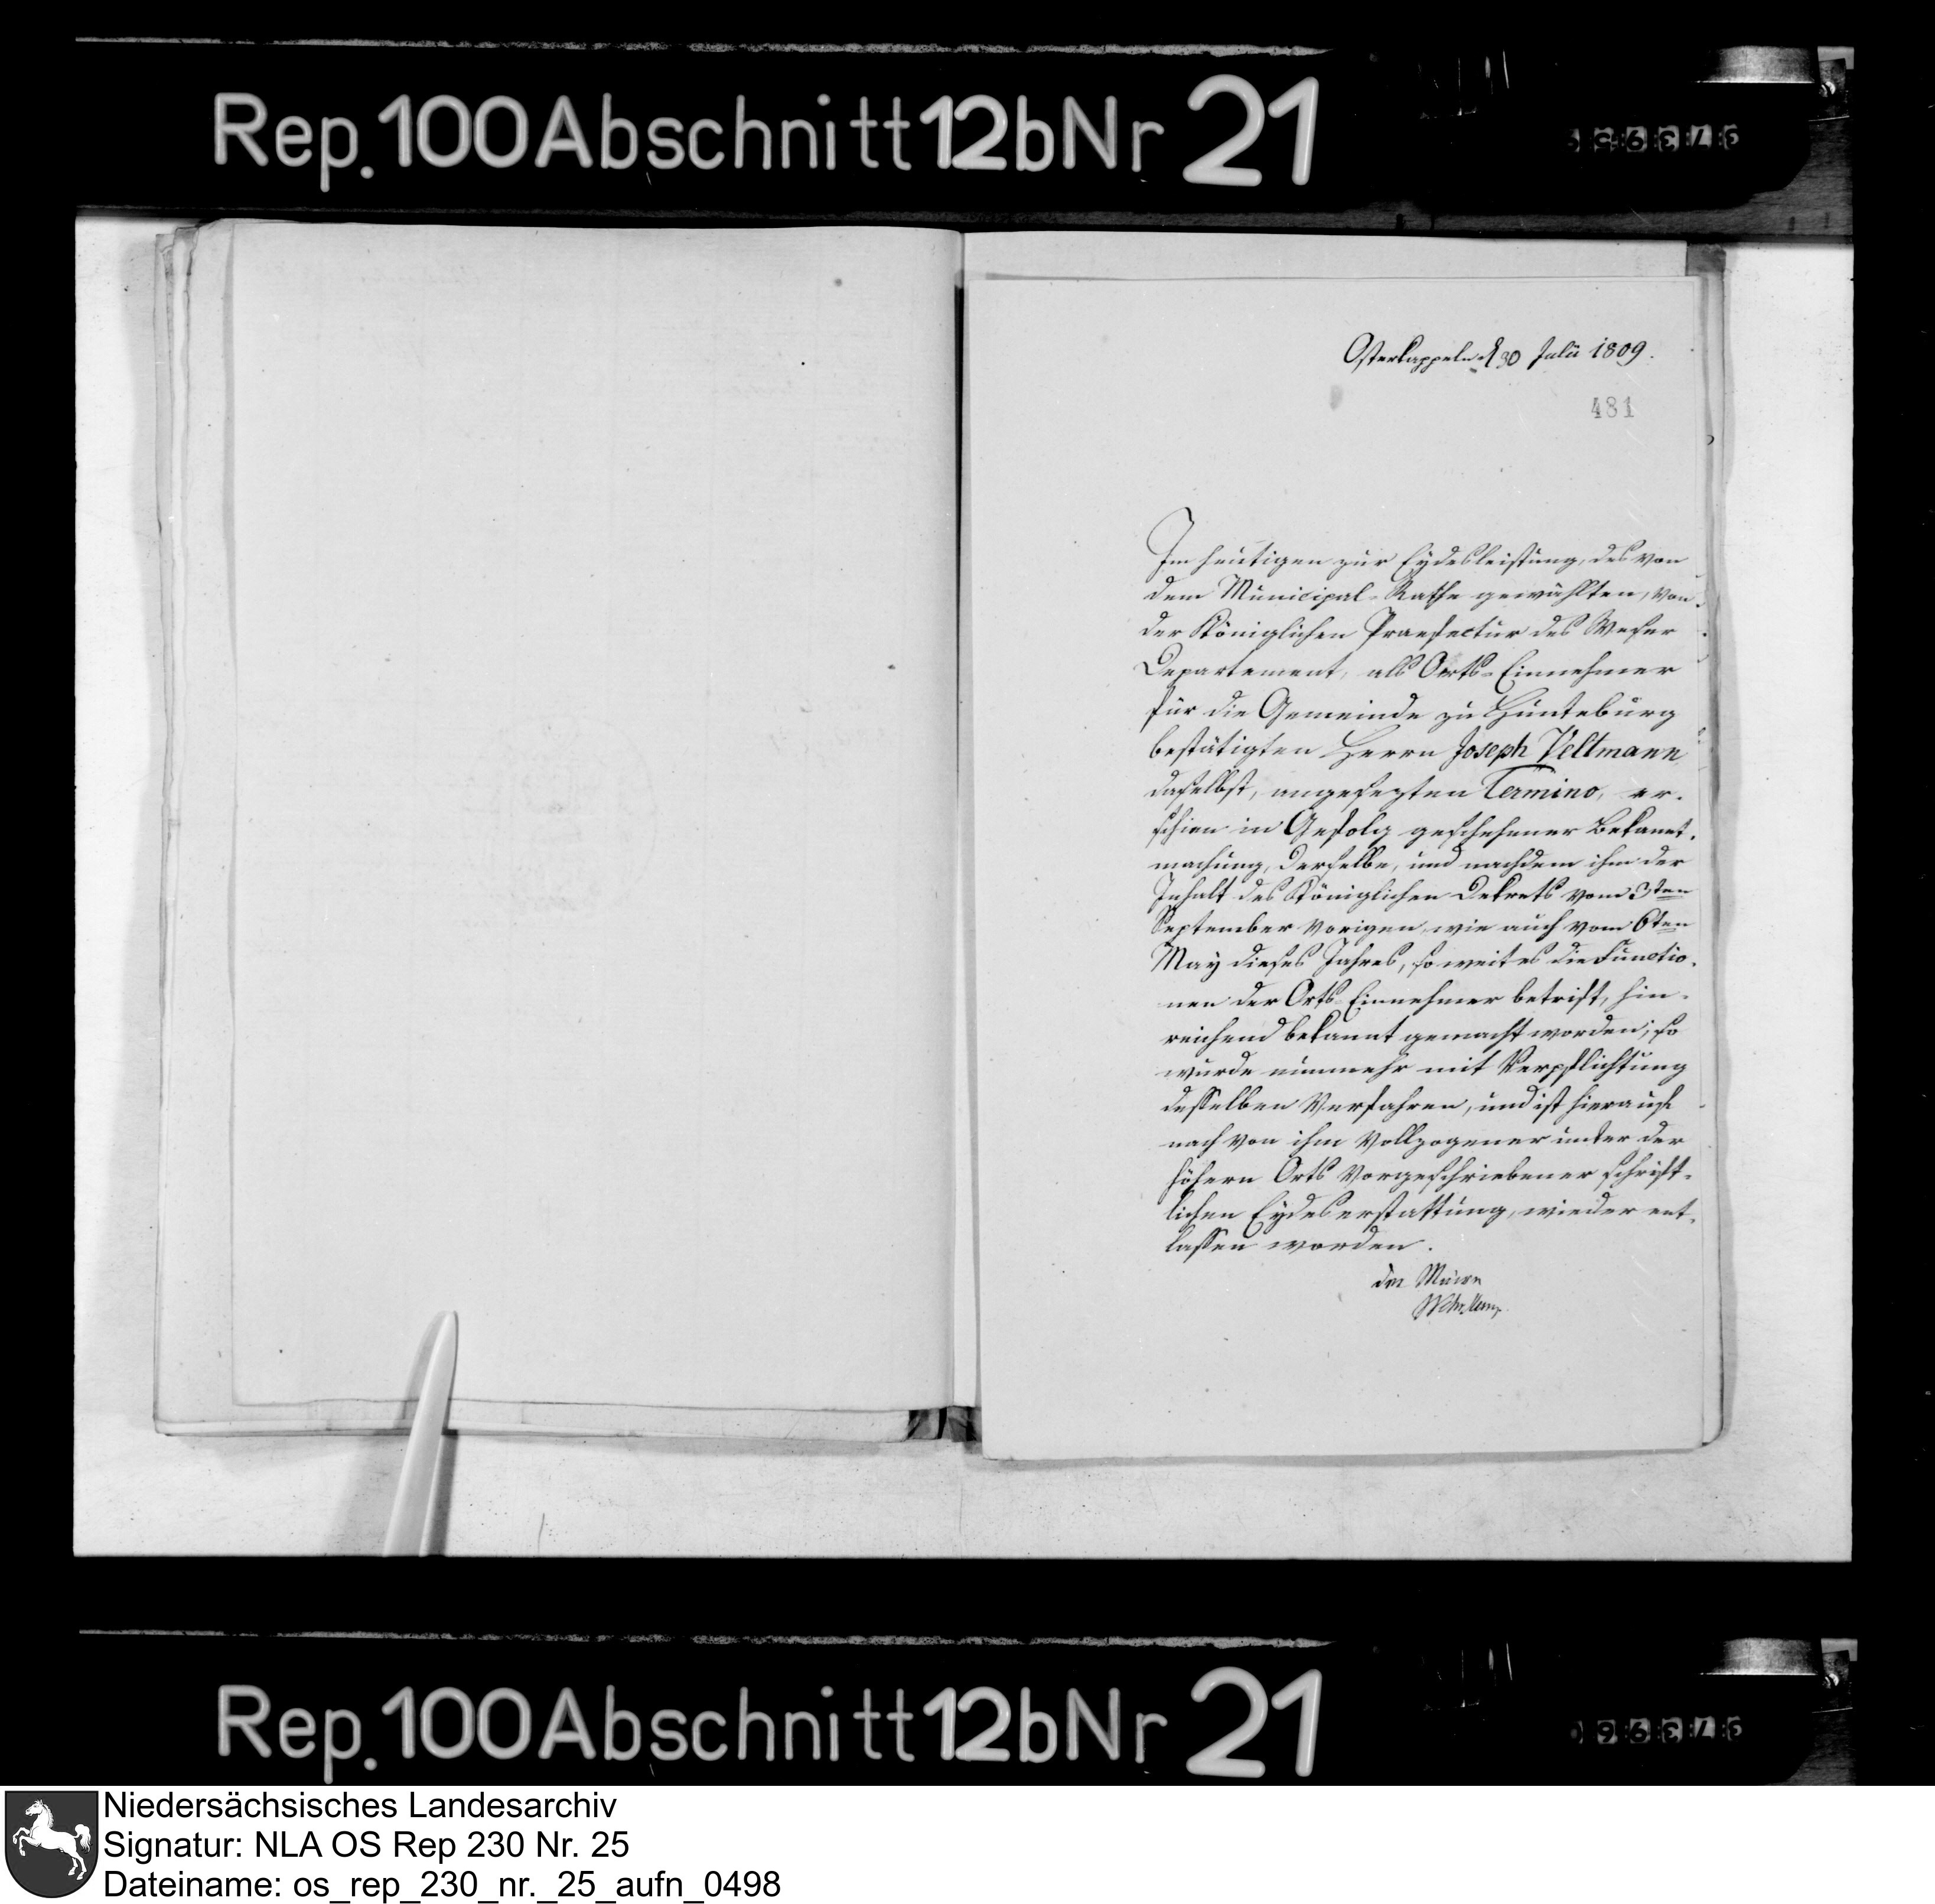 Rep. 100 Abschnitt 12b Nr 21
Osterkappeln d 30 Julii 1809.
481
Im heutigen zur Eydesleistung, des von
dem Municipal-Rathe gewählten, von
der Königlichen Praefectur des Weser
Departement, als Orts-Einnehmer
für die Gemeinde zu Hunteburg
bestätigten Herrn Joseph Veltmann
daselbst, angesezten Termino, er-
schien in Gefolg geschehener Bekannt-
machung, Derselbe, und nachdem ihm der
Inhalt des Königlichen Dekrets vom 3ten
September vorigen, wie auch vom 6ten
May dieses Jahres, so weit es die Functio-
nen der Orts-Einnehmer betrift, hin-
reichend bekannt gemacht worden; so
wurde nunmehr mit Verpflichtung
desselben Verfahren, und ist hierauf
nach von ihm vollzogener unter der
höhern Orts vorgeschriebener schrift-
lichen Eydeserstattung, wieder ent-
lassen worden.
der Maire
Rep. 100 Abschnitt 12b Nr 21
Niedersächsisches Landesarchiv
Signatur: NLA OS Rep 230 Nr. 25
Dateiname: os_rep_230_nr._25_aufn_0498